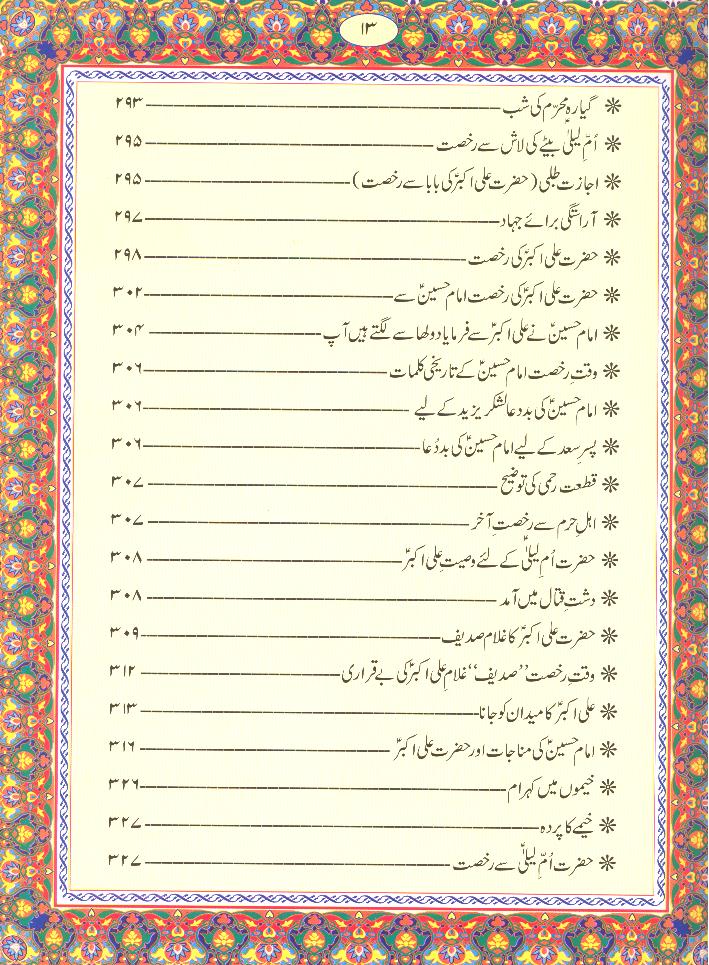 ۱۳
❋ گیارہ محرّم کی شب ۲۹۳
❋ اُمِّ لیلیٰؑ بیٹے کی لاش سے رخصت ۲۹۵
❋ اجازت طلبی (حضرت علی اکبرؑ کی بابا سے رخصت) ۲۹۵
❋ آراستگی برائے جہاد ۲۹۷
❋ حضرت علی اکبرؑ کی رخصت ۲۹۸
❋ حضرت علی اکبرؑ کی رخصت امام حسینؑ سے ۳۰۲
❋ امام حسینؑ نے علی اکبرؑ سے فرمایا دولھا سے لگتے ہیں آپ ۳۰۴
❋ وقتِ رخصت امام حسینؑ کے تاریخی کلمات ۳۰۶
❋ امام حسینؑ کی بددعا لشکرِ یزید کے لیے ۳۰۶
❋ پسرِ سعد کے لیے امام حسینؑ کی بددُعا ۳۰۶
❋ قطعت رحمی کی توضیح ۳۰۷
❋ اہلِ حرم سے رخصتِ آخر ۳۰۷
❋ حضرت اُمِّ لیلیٰؑ کے لئے وصیتِ علی اکبرؑ ۳۰۸
❋ دشتِ قتال میں آمد ۳۰۸
❋ حضرت علی اکبرؑ کا غلام صدیف ۳۰۹
❋ وقتِ رخصت ’’صدیف‘‘ غلامِ علی اکبرؑ کی بے قراری ۳۱۲
❋ علی اکبرؑ کا میدان کو جانا ۳۱۳
❋ امام حسینؑ کی مناجات اور حضرت علی اکبرؑ ۳۱۶
❋ خیموں میں کہرام ۳۲۶
❋ خیمے کا پردہ ۳۲۷
❋ حضرت اُمِّ لیلیٰؑ سے رخصت ۳۲۷